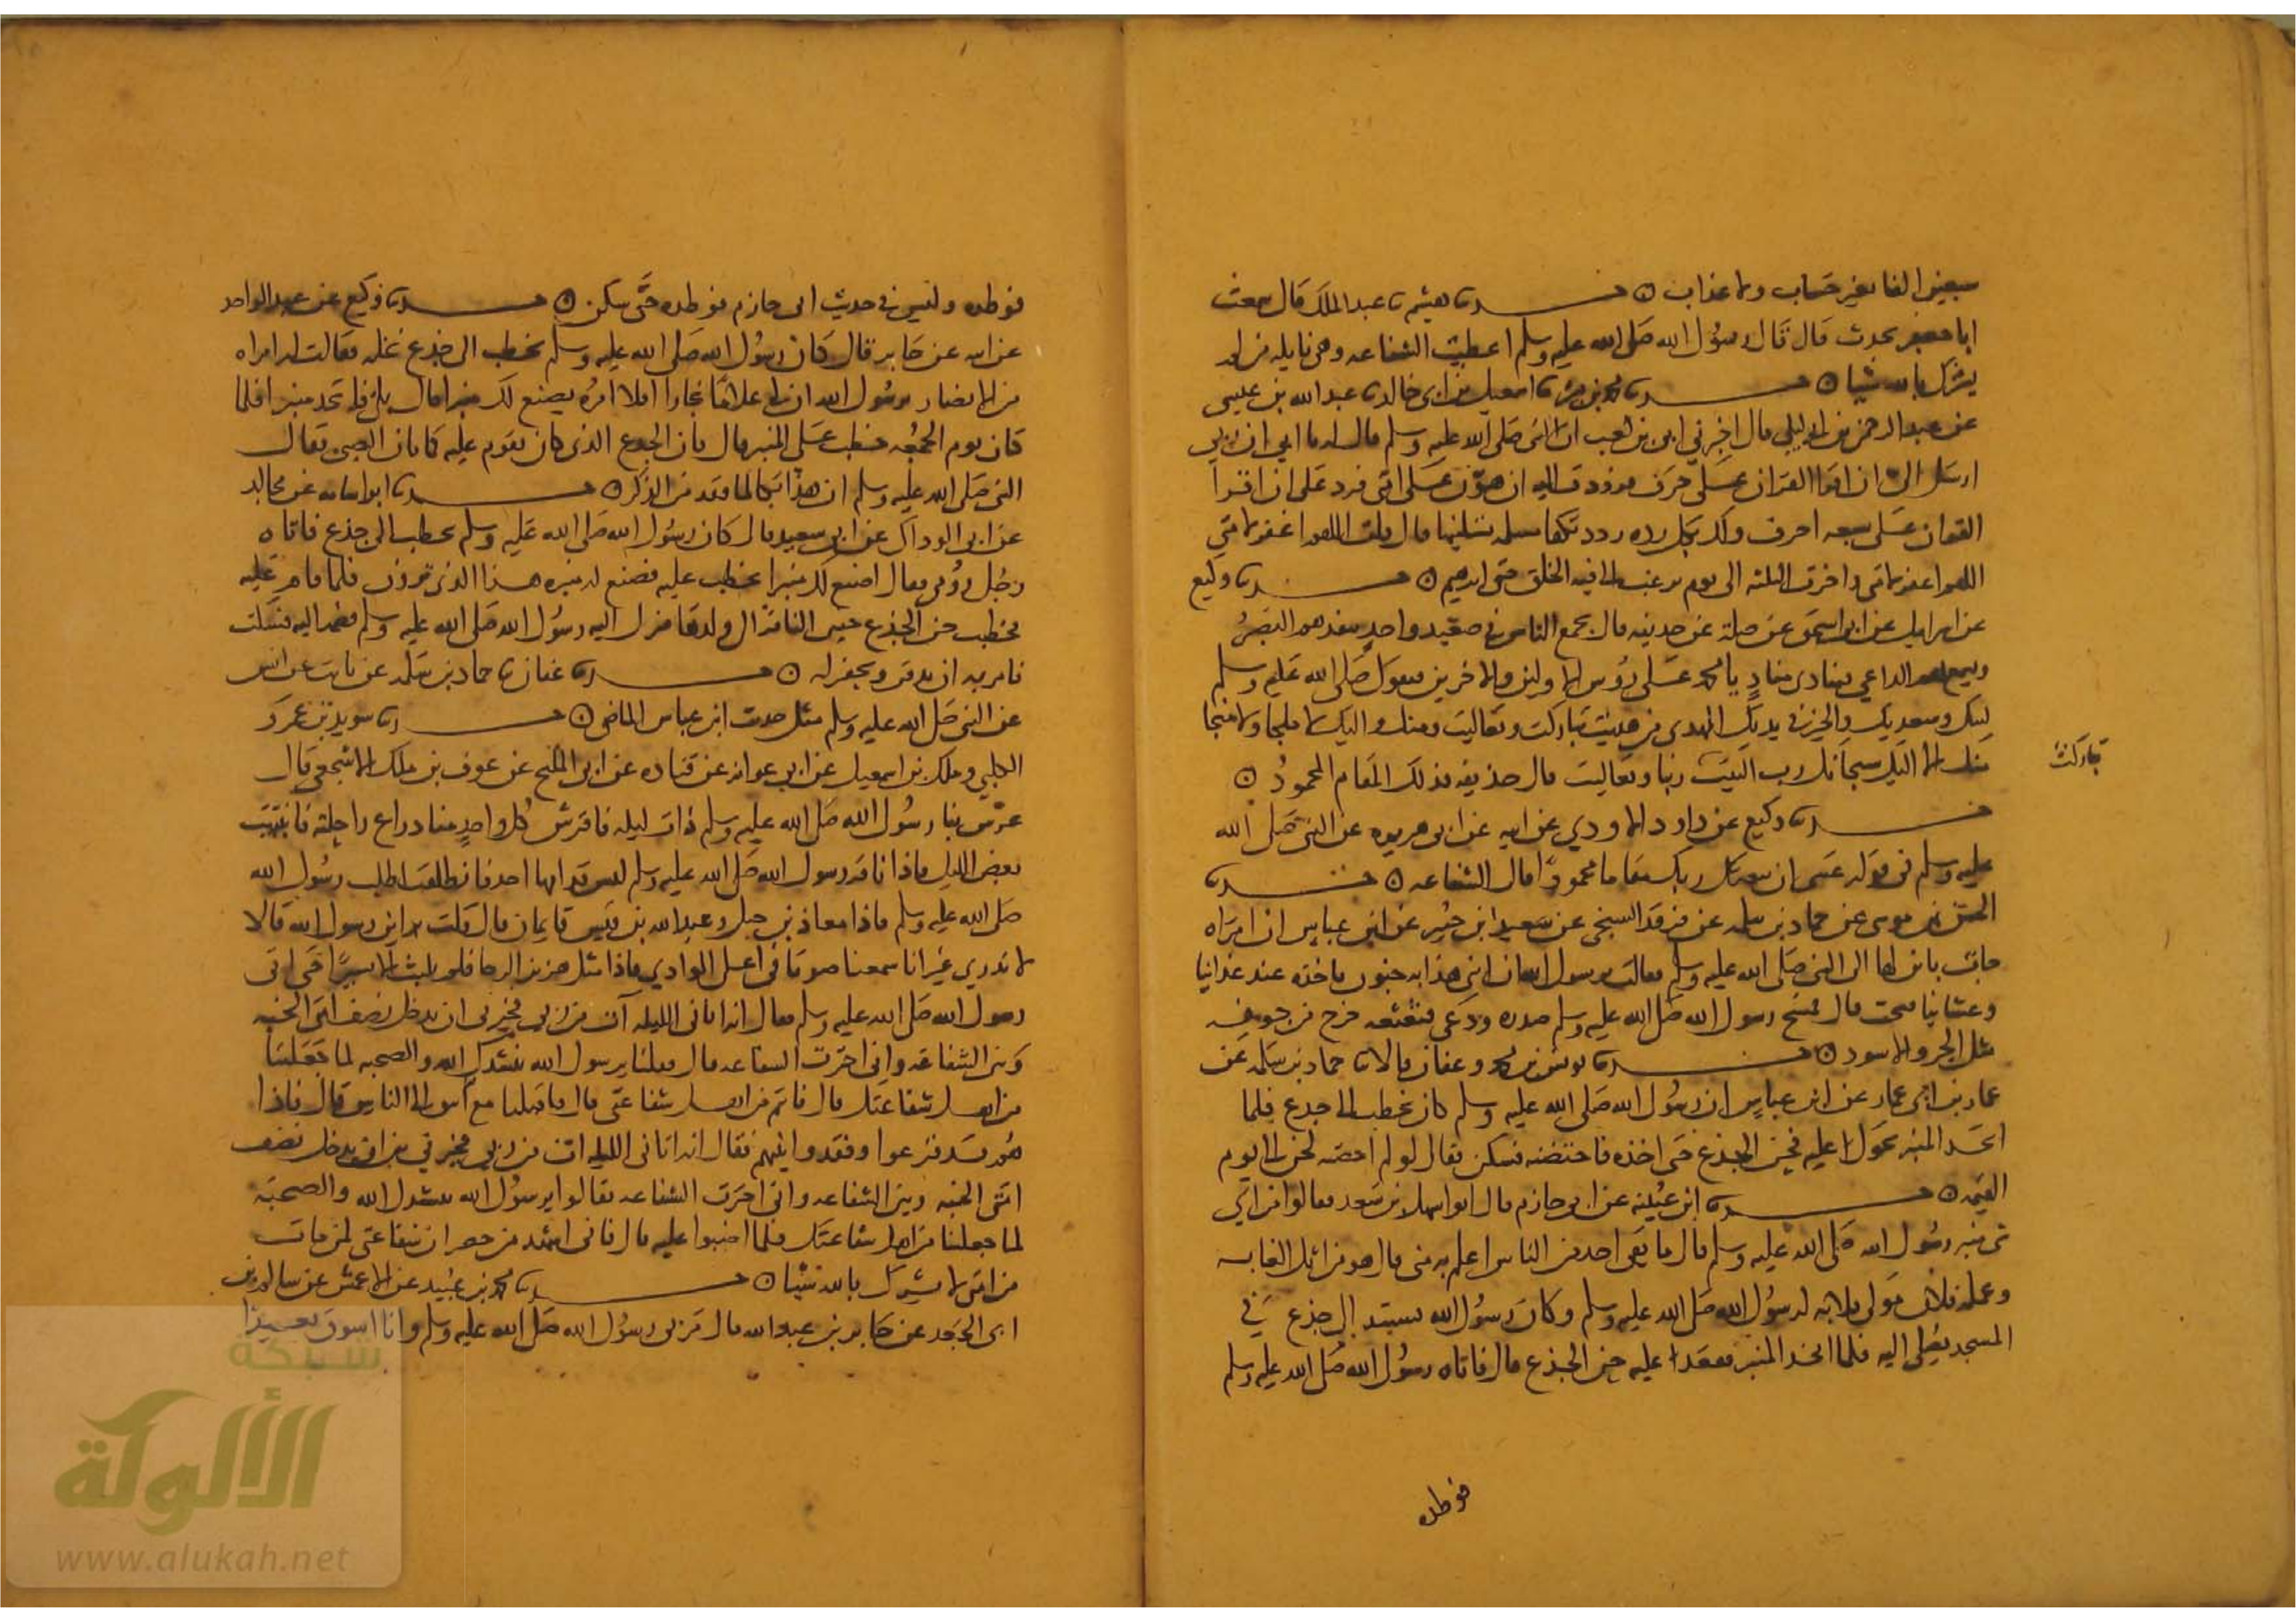 سبعين الفا بغير حساب ولا عذاب ۞ حدثنا هشيم نا عبد الملك قال سمعت
ابا جعفر يحدث قال قال رسول الله صلى الله عليه وسلم اعطيت الشفاعه وهى نايله من لم
يشرك بالله شيا ۞ حدثنا محمد بن بشر نا اسمعيل بن ابى خالد نا عبد الله بن عيسى
عن عبد الرحمن بن ابى ليلى قال اخبرني ابى بن كعب ان النبى صلى الله عليه وسلم قال له يا ابي ان ربي
ارسل الى ان اقرا القران على حرف فرددت اليه ان هون على امتى فرد على ان اقرا
القران على سبعه احرف ولك بكل رده رددتكها مسله تسلنيها قال قلت اللهم اغفر لامتي
اللهم اغفر لامتى واخرت الثلثه الى يوم يرغب الى فيه الخلق حتى ابرهيم ۞ حدثنا وكيع
عن اسرايل عن ابى اسحق عن صلة عن حذيفه قال يجمع الناس في صعيد واحد ينفذهم البصر
ويسمعهم الداعي فينادى مناد يا محمد على رؤس الاولين والاخرين فيقول صلى الله عليه وسلم
لبيك وسعديك والخير في يديك المهدى من هديت تباركت وتعاليت ومنك واليك لا ملجا ولا منجا
منك الا اليك سبحانك رب البيت ربنا وتعاليت قال حذيفه فذلك المقام المحمود ۞
تباركت
حدثنا وكيع عن داود الاودي عن ابيه عن ابى هريره عن النبى صلى الله
عليه وسلم فى قوله عسى ان يبعثك ربك مقاما محمودا قال الشفاعه ۞ حدثنا
الحسن بن موسى عن حماد بن سلمه عن فرقد السبخى عن سعيد ابن جبير عن ابن عباس ان امراه
جات بابن لها الى النبى صلى الله عليه وسلم فقالت يرسول الله ان ابنى هذا به جنون ياخذه عند غداينا
وعشاينا قال فمسح رسول الله صلى الله عليه وسلم صدره ودعى فثعثعه فخرج من جوفه
مثل الجرو الاسود ۞ حدثنا يونس بن محمد وعفان قالا نا حماد بن سلمه عن
عمار بن ابى عمار عن ابن عباس ان رسول الله صلى الله عليه وسلم كان يخطب الى جدع فلما
اتخذ المنبر تحول اليه فحن الجذع حتى اخذه فاحتضنه فسكن فقال لو لم احتضنه لحن الى يوم
القيمه ۞ حدثنا ابن عيينه عن ابى حازم قال اتوا سهل بن سعد فقالوا من اي
شى منبر رسول الله صلى الله عليه وسلم قال ما بقى احد من الناس اعلم به منى قال هو من اثل الغابه
وعمله فلان مولى فلانه لرسول الله صلى الله عليه وسلم وكان رسول الله يستند الى جذع في
المسجد يصلى اليه فلما اتخذ المنبر فقعد عليه حن الجذع قال فاتاه رسول الله صلى الله عليه وسلم
فوطده
فوطده وليس فى حديث ابى حازم فوطده حتى سكن ۞ حدثنا وكيع عن عبد الواحد
عن ابيه عن جابر قال كان رسول الله صلى الله عليه وسلم يخطب الى جذع نخله فقالت له امراه
من الانصار يرسول الله ان لى غلاما نجارا افلا امره يصنع لك منبرا قال بلى فاتخذ منبرا فلما
كان يوم الجمعه خطب على المنبر قال فان الجذع الذى كان يقوم عليه كما يان الصبى فقال
النبى صلى الله عليه وسلم ان هذا بكا لما فقد من الذكر ۞ حدثنا ابو اسامه عن مجالد
عن ابى الوداك عن ابى سعيد قال كان رسول الله صلى الله عليه وسلم يخطب الى جذع فاتاه
رجل رومى فقال اصنع لك منبرا تخطب عليه فصنع له منبره هذا الذى ترون فلما قام عليه
يخطب حن الجذع حنين الناقه الى ولدها فنزل اليه رسول الله صلى الله عليه وسلم فضمه اليه فسكت
فامر به ان يدفن ويحفر له ۞ حدثنا عفان نا حماد بن سلمه عن ثابت عن انس
عن النبى صلى الله عليه وسلم مثل حديث ابن عباس الماضى ۞ حدثنا سويد بن عمرو
الكلبي وملك بن اسمعيل عن ابى عوانه عن قتاده عن ابى المليح عن عوف بن ملك الاشجعي قال
عرس بنا رسول الله صلى الله عليه وسلم ذات ليله فافترش كل واحد منا ذراع راحلته فانتبهت
بعض الليل فاذا ناقه رسول الله صلى الله عليه وسلم ليس قدامها احد فانطلقت اطلب رسول الله
صلى الله عليه وسلم فاذا معاذ بن جبل وعبد الله بن قيس قايمان قال قلت اين رسول الله قالا
لا ندري غير انا سمعنا صوتا فى اعلى الوادي فاذا مثل هزيز الرحا فلم يلبث الا يسيرا حتى اتى
رسول الله صلى الله عليه وسلم فقال انه اتانى الليله آت من ربى فخيرنى ان يدخل نصف امتى الجنه
وبين الشفاعه وانى اخترت الشفاعه قال فقلنا يرسول الله ننشدك الله والصحبه لما جعلتنا
من اهل شفاعتك قال فانتم من اهل شفاعتى قال فاقبلنا مع الى الناس قال فاذا
هم قد فزعوا وفقدوا نبيهم فقال انه اتانى الليله آت من ربى فخيرني بين ان يدخل نصف
امتى الجنه وبين الشفاعه وانى اخترت الشفاعه فقالوا يرسول الله ننشدك الله والصحبه
لما جعلتنا من اهل شفاعتك فلما اضبوا عليه قال فانى اشهد من حضر ان شفاعتى لمن مات
من امتى لا يشرك بالله شيا ۞ حدثنا محمد بن عبيد عن الاعمش عن سالم بن
ابى الجعد عن جابر بن عبد الله قال مر بى رسول الله صلى الله عليه وسلم وانا اسوق بعيرا
شبكة
الألوكة
www.alukah.net